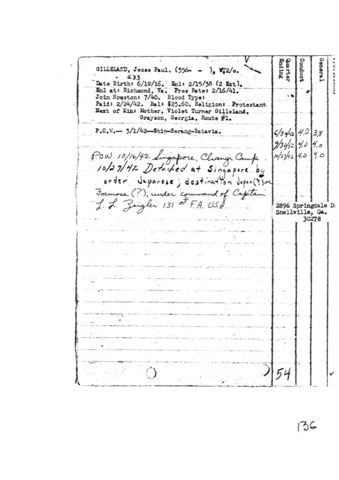 GILLELAND, Jesse Paul. (556- ), WT2/c.
Date Birth: 6/10/16. Enl: 2/15/38 (2 Ext).
Enl at: Richmond, Va. Pres Rate: 2/16/41.
Join Houston: 7/40. Blood Type:
Paid: 2/24/42. Bal: $25.60. Religion: Protestant
Next of Kin: Mother, Violet Turner Gilleland,
Grayson, Georgia, Route #1.
Quarter Ending
Conduct
General
P.O.W.— 3/1/42—Ship-Serang-Batavia.
4.0 3.8
POW 10/16/42 Singapore, Changi Camp
4.0 4.0
10/27/42 Detached at Singapore by
4.0 4.0
order Japanese; destination Japan(?) or
Formosa (?), under command of Captain
L. L. Zeigler 131st F.A. USA.
2896 Springdale D
Snellville, Ga.
30278
54
136